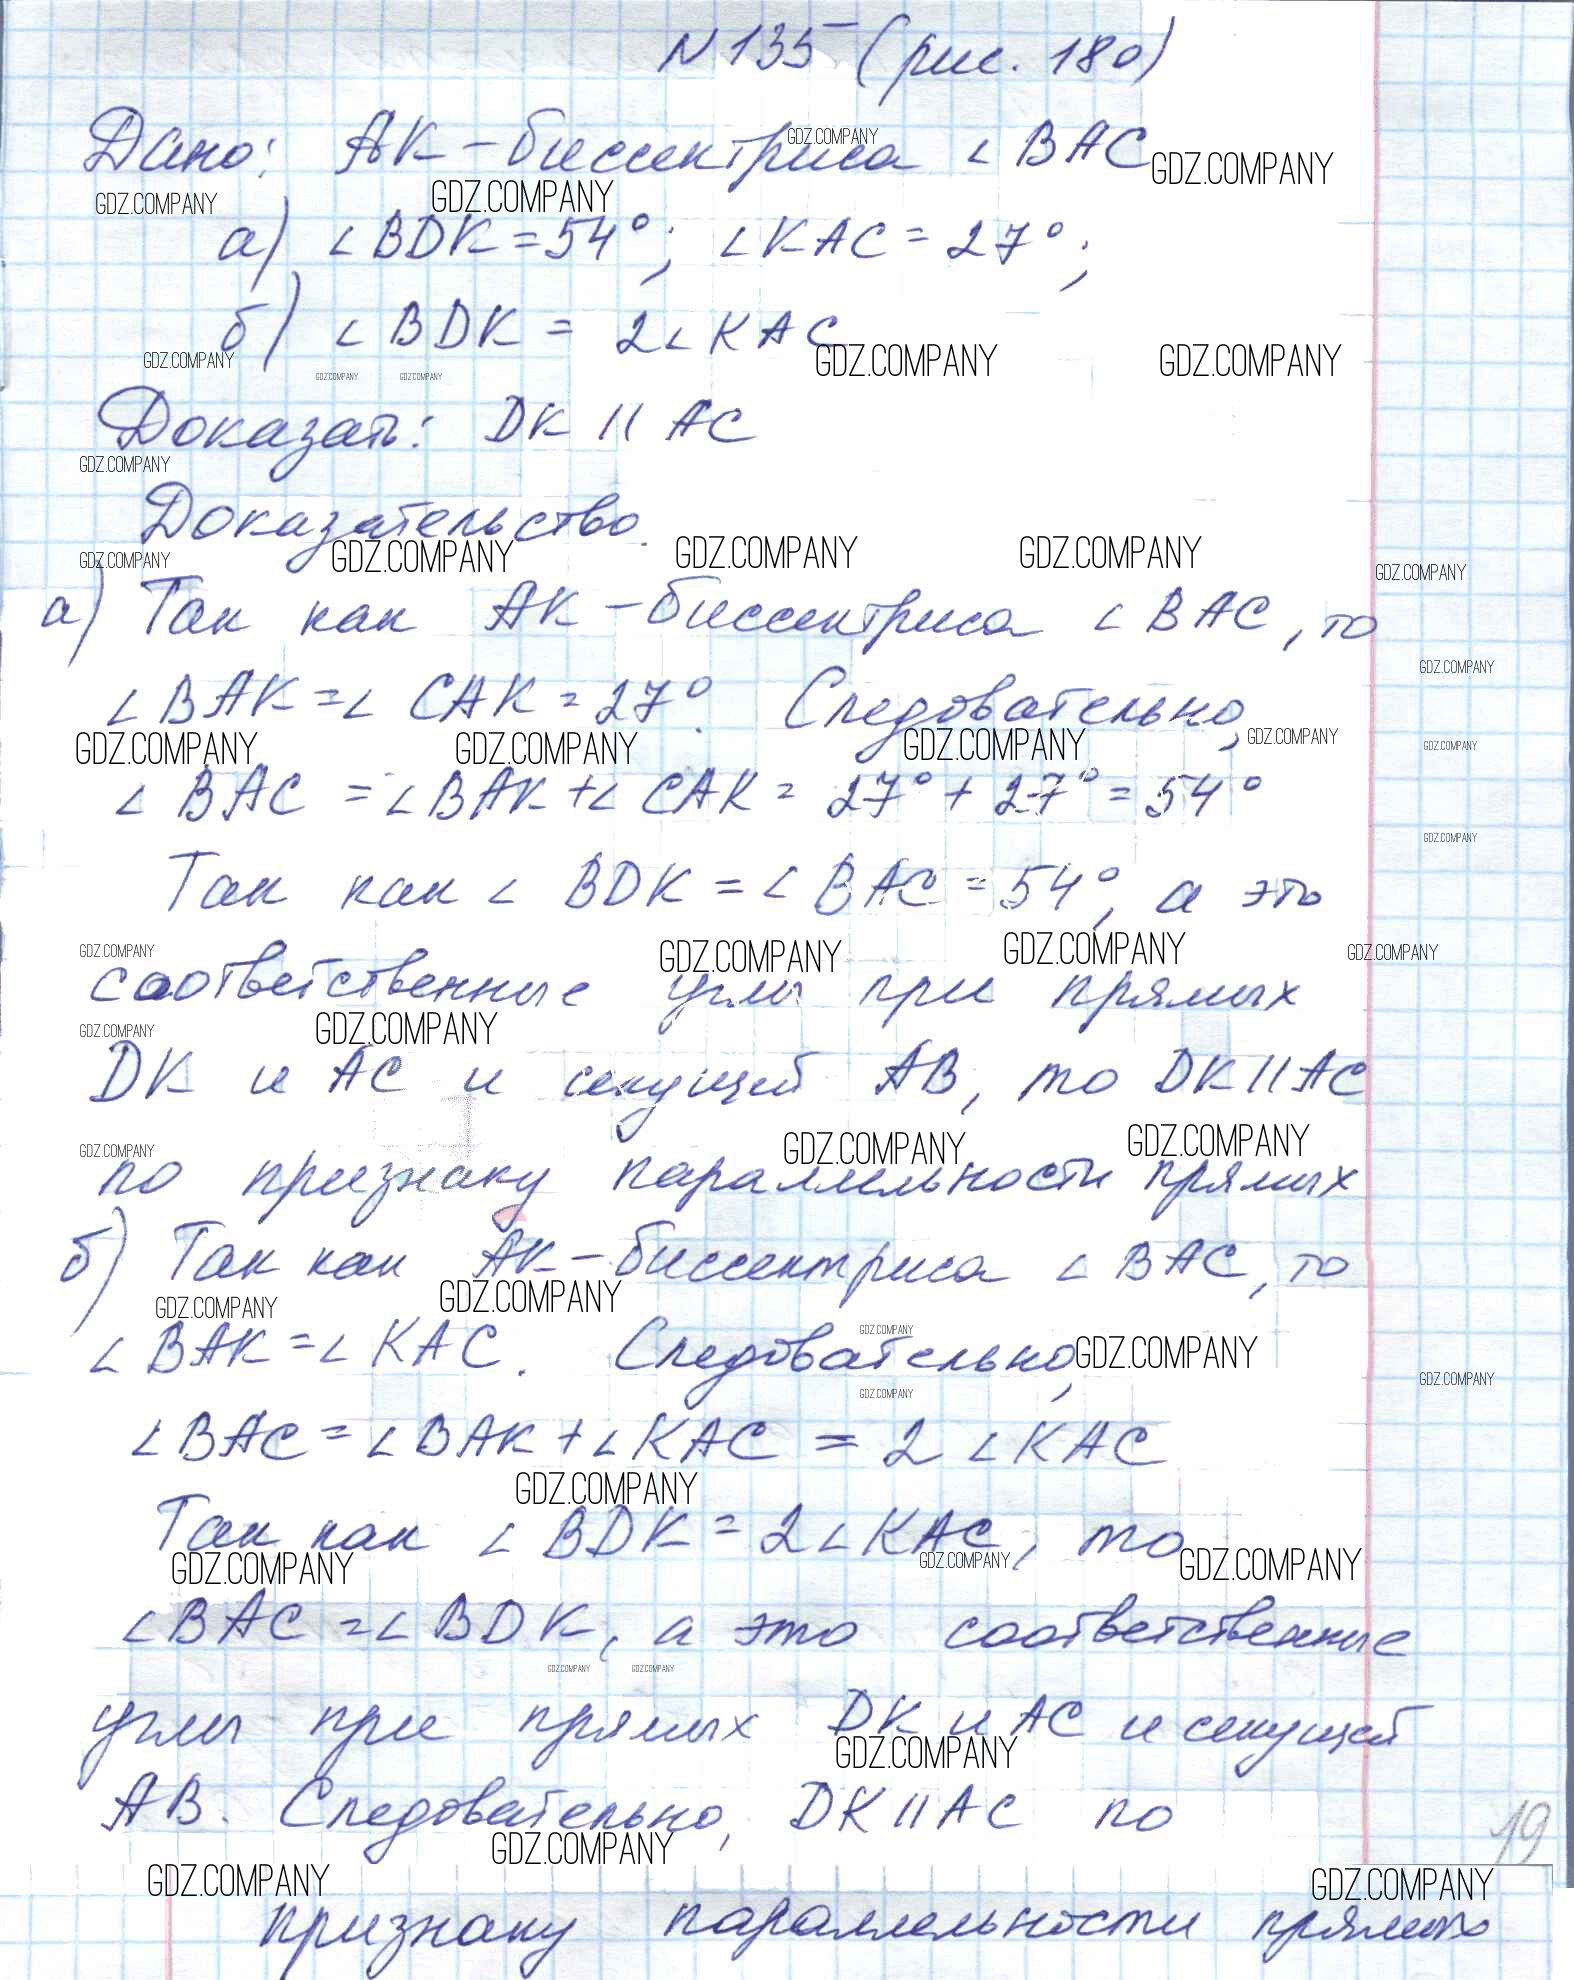 N 135 (рис. 180)
Дано: АК - биссектриса ∠ BAC
а) ∠BDK = 54°; ∠KAC = 27°;
б) ∠BDK = 2∠KAC
Доказать: DK || AC
Доказательство.
а) Так как АК - биссектриса ∠ BAC, то
∠BAK = ∠ CAK = 27°. Следовательно,
∠ BAC = ∠BAK + ∠ CAK = 27° + 27° = 54°
Так как ∠ BDK = ∠ BAC = 54°, а это
соответственные углы при прямых
DK и AC и секущей AB, то DK || AC
по признаку параллельности прямых
б) Так как АК - биссектриса ∠ BAC, то
∠ BAK = ∠ KAC. Следовательно,
∠BAC = ∠BAK + ∠KAC = 2 ∠KAC
Так как ∠ BDK = 2∠KAC, то
∠BAC = ∠BDK, а это соответственные
углы при прямых DK и AC и секущей
AB. Следовательно, DK || AC по
19
признаку параллельности прямых
GDZ.COMPANY